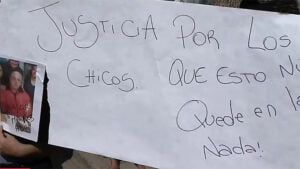 JUSTICIA POR LOS
CHICOS. QUE ESTO
Quede en la
Nada!